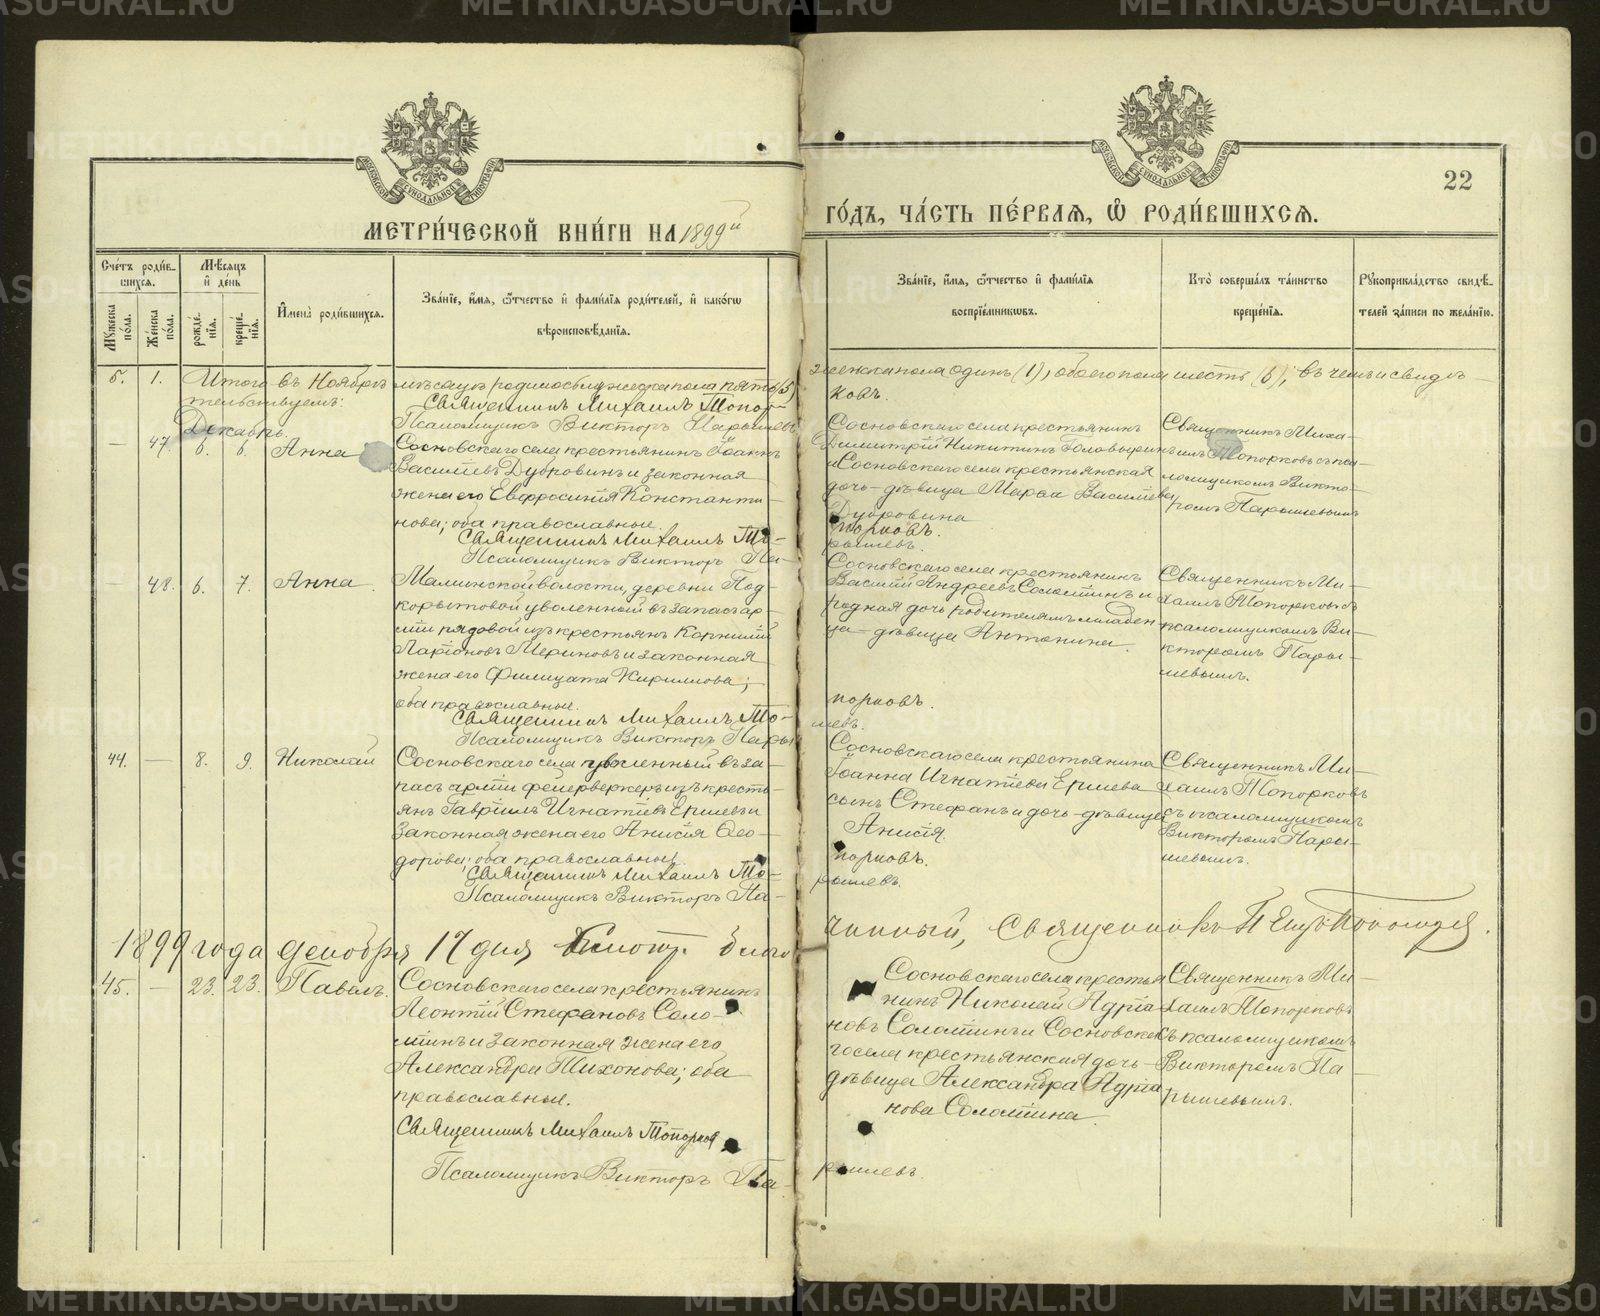 METRIKI.GASO-URAL.RU
МЕТРИ́ЧЕСКОЙ КНИ́ГИ НА 1899й
ГО́ДЪ, ЧА́СТЬ ПЕ́РВАѦ, Ѽ РОДИ́ВШИХСѦ.
22
Сче́тъ роди́вшихся.
Мѣ́сяцъ и҆ де́нь
Мꙋ́жеска по́ла.
Же́нска по́ла.
рожде́нїя.
креще́нїя.
И҆мена̀ роди́вшихся.
Зва́нїе, и҆́мя, ѻ҆́тчество и҆ фами́лїя роди́телей, и҆ како́гѡ
вѣроисповѣ́данїя.
Зва́нїе, и҆́мя, ѻ҆́тчество и҆ фами́лїя
воспрїе́мникѡвъ.
Кто̀ соверша́лъ та́инство
креще́нїя.
Рꙋкоприкла́дство свидѣ́-
телей за́писи по жела́нїю.
5. 1. Итого въ Ноябрѣ мѣсяцѣ родилось мужеска пола пять (5)
женска пола один (1), обоего пола шесть (6); въ чемъ и свидѣ
тельствуемъ:
Священникъ Михаилъ Топор-
ковъ.
Псаломщикъ Викторъ Парышевъ
Декабрь.
— 47. 6. 6. Анна
Сосновскаго села крестьянинъ Іоаннъ
Васильевъ Дубровинъ и законная
жена его Евфросинія Константи-
нова; оба православные.
Священникъ Михаилъ То-
Псаломщикъ Викторъ Па-
Сосновскаго села крестьянинъ
Димитрій Никитинъ Головыринъ
и Сосновскаго села крестьянская
дочь-дѣвица Марья Васильева
Дубровина
порковъ.
рышевъ.
Священникъ Миха-
илъ Топорковъ съ пса-
ломщикомъ Викто-
ромъ Парышевымъ
— 48. 6. 7. Анна.
Маминской волости, деревни Под-
корытовой уволенный въ запасъ ар-
міи рядовой изъ крестьянъ Корнилій
Ларіоновъ Мериновъ и законная
жена его Филицата Кириллова;
оба православные.
Священникъ Михаилъ То-
Псаломщикъ Викторъ Пары
Сосновскаго села крестьянинъ
Василій Андреевъ Соломѣинъ и
родная дочь родителямъ младен-
ца-дѣвица Антонина.
порковъ.
шевъ.
Священникъ Ми-
хаилъ Топорковъ съ
псаломщикомъ Ви-
кторомъ Пары-
шевымъ.
44. — 8. 9. Николай
Сосновскаго села уволенный въ за-
пасъ арміи фейерверкеръ изъ кресть-
янъ Гавріилъ Игнатіевъ Ершевъ и
законная жена его Анисія Ѳео-
дорова; оба православные.
Священникъ Михаилъ То-
Псаломщикъ Викторъ Па-
Сосновскаго села крестьянина
Іоанна Игнатіева Ершева
сынъ Стефанъ и дочь-дѣвица
Анисія.
порковъ.
рышевъ.
Священникъ Ми-
хаилъ Топорковъ
съ псаломщикомъ
Викторомъ Пары-
шевымъ.
1899 года декабря 17 дня смотр. благо
чинный, Священникъ
45. — 23. 23. Павелъ.
Сосновскаго села крестьянинъ
Леонтій Стефановъ Соло-
мѣинъ и законная жена его
Александра Тихонова; оба
православные.
Священникъ Михаилъ Топорковъ
Псаломщикъ Викторъ Па-
Сосновскаго села крестья
нинъ Николай Адріа-
новъ Соломѣинъ и Сосновска-
го села крестьянская дочь-
дѣвица Александра Адріа
нова Соломѣина.
рышевъ.
Священникъ Ми-
хаилъ Топорковъ
съ псаломщикомъ
Викторомъ Па-
рышевымъ.